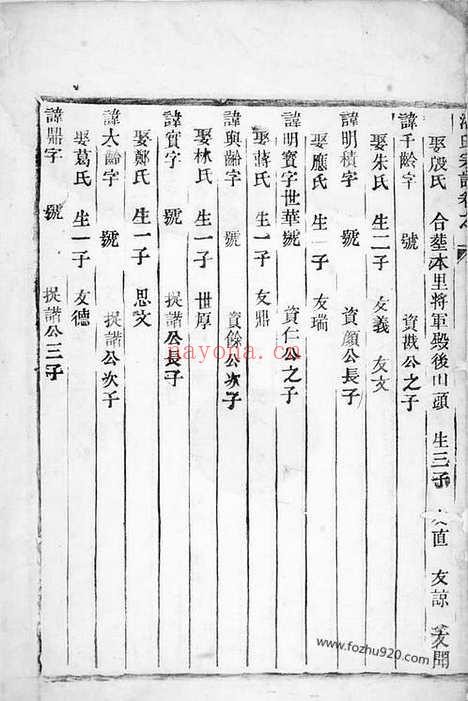 娶殷氏 合塟本里將軍殿後山頭 生三子 友直 友諒 友聞
諱千齡字 號 資戡公之子
娶朱氏 生二子 友義 友文
諱明積字 號 資顏公長子
娶應氏 生一子 友瑞
諱明寳字世華號 資仁公之子
娶蔣氏 生一子 友鼎
諱與齡字 號 資餘公次子
娶林氏 生一子 世厚
諱實字 號 提諧公長子
娶鄭氏 生一子 思文
諱大齡字 號 提諧公次子
娶葛氏 生一子 友德
諱鼎字 號 提諧公三子
nayona.cn
www.fozhu920.com